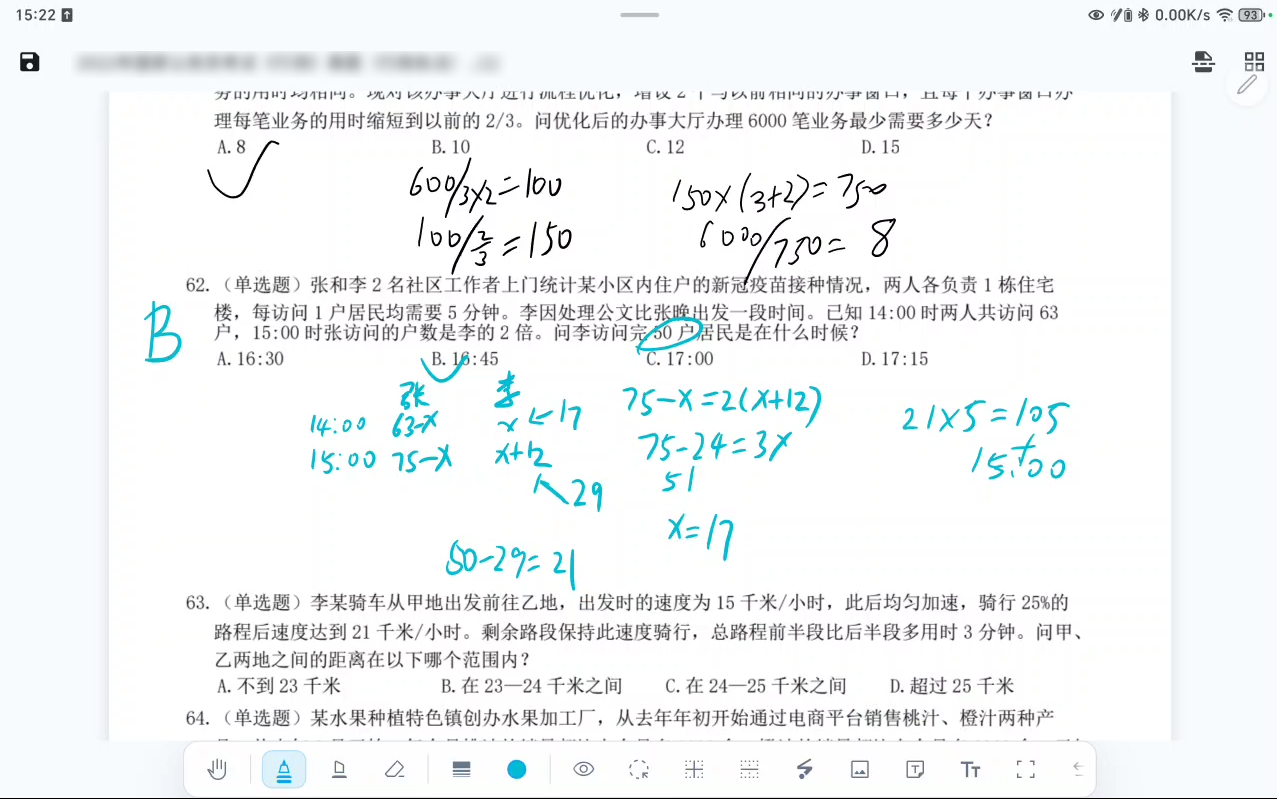 15:22
0.00K/s
93
理每笔业务的用时缩短到以前的 2/3。问优化后的办事大厅办理 6000 笔业务最少需要多少天？
A.8 B.10 C.12 D.15
600/3×2=100 150×(3+2)=750
100/2/3=150 6000/750=8
62.（单选题）张和李 2 名社区工作者上门统计某小区内住户的新冠疫苗接种情况，两人各负责 1 栋住宅
楼，每访问 1 户居民均需要 5 分钟。李因处理公文比张晚出发一段时间。已知 14:00 时两人共访问 63
户，15:00 时张访问的户数是李的 2 倍。问李访问完 50 户居民是在什么时候？
B
A.16:30 B.16:45 C.17:00 D.17:15
张 李 75-x=2(x+12)
14:00 63-x x ←17 21×5=105
15:00 75-x x+12 75-24=3x + 15:00
29 51
x=17
50-29=21
63.（单选题）李某骑车从甲地出发前往乙地，出发时的速度为 15 千米/小时，此后均匀加速，骑行 25%的
路程后速度达到 21 千米/小时。剩余路段保持此速度骑行，总路程前半段比后半段多用时 3 分钟。问甲、
乙两地之间的距离在以下哪个范围内？
A.不到 23 千米 B.在 23—24 千米之间 C.在 24—25 千米之间 D.超过 25 千米
64.（单选题）某水果种植特色镇创办水果加工厂，从去年年初开始通过电商平台销售桃汁、橙汁两种产